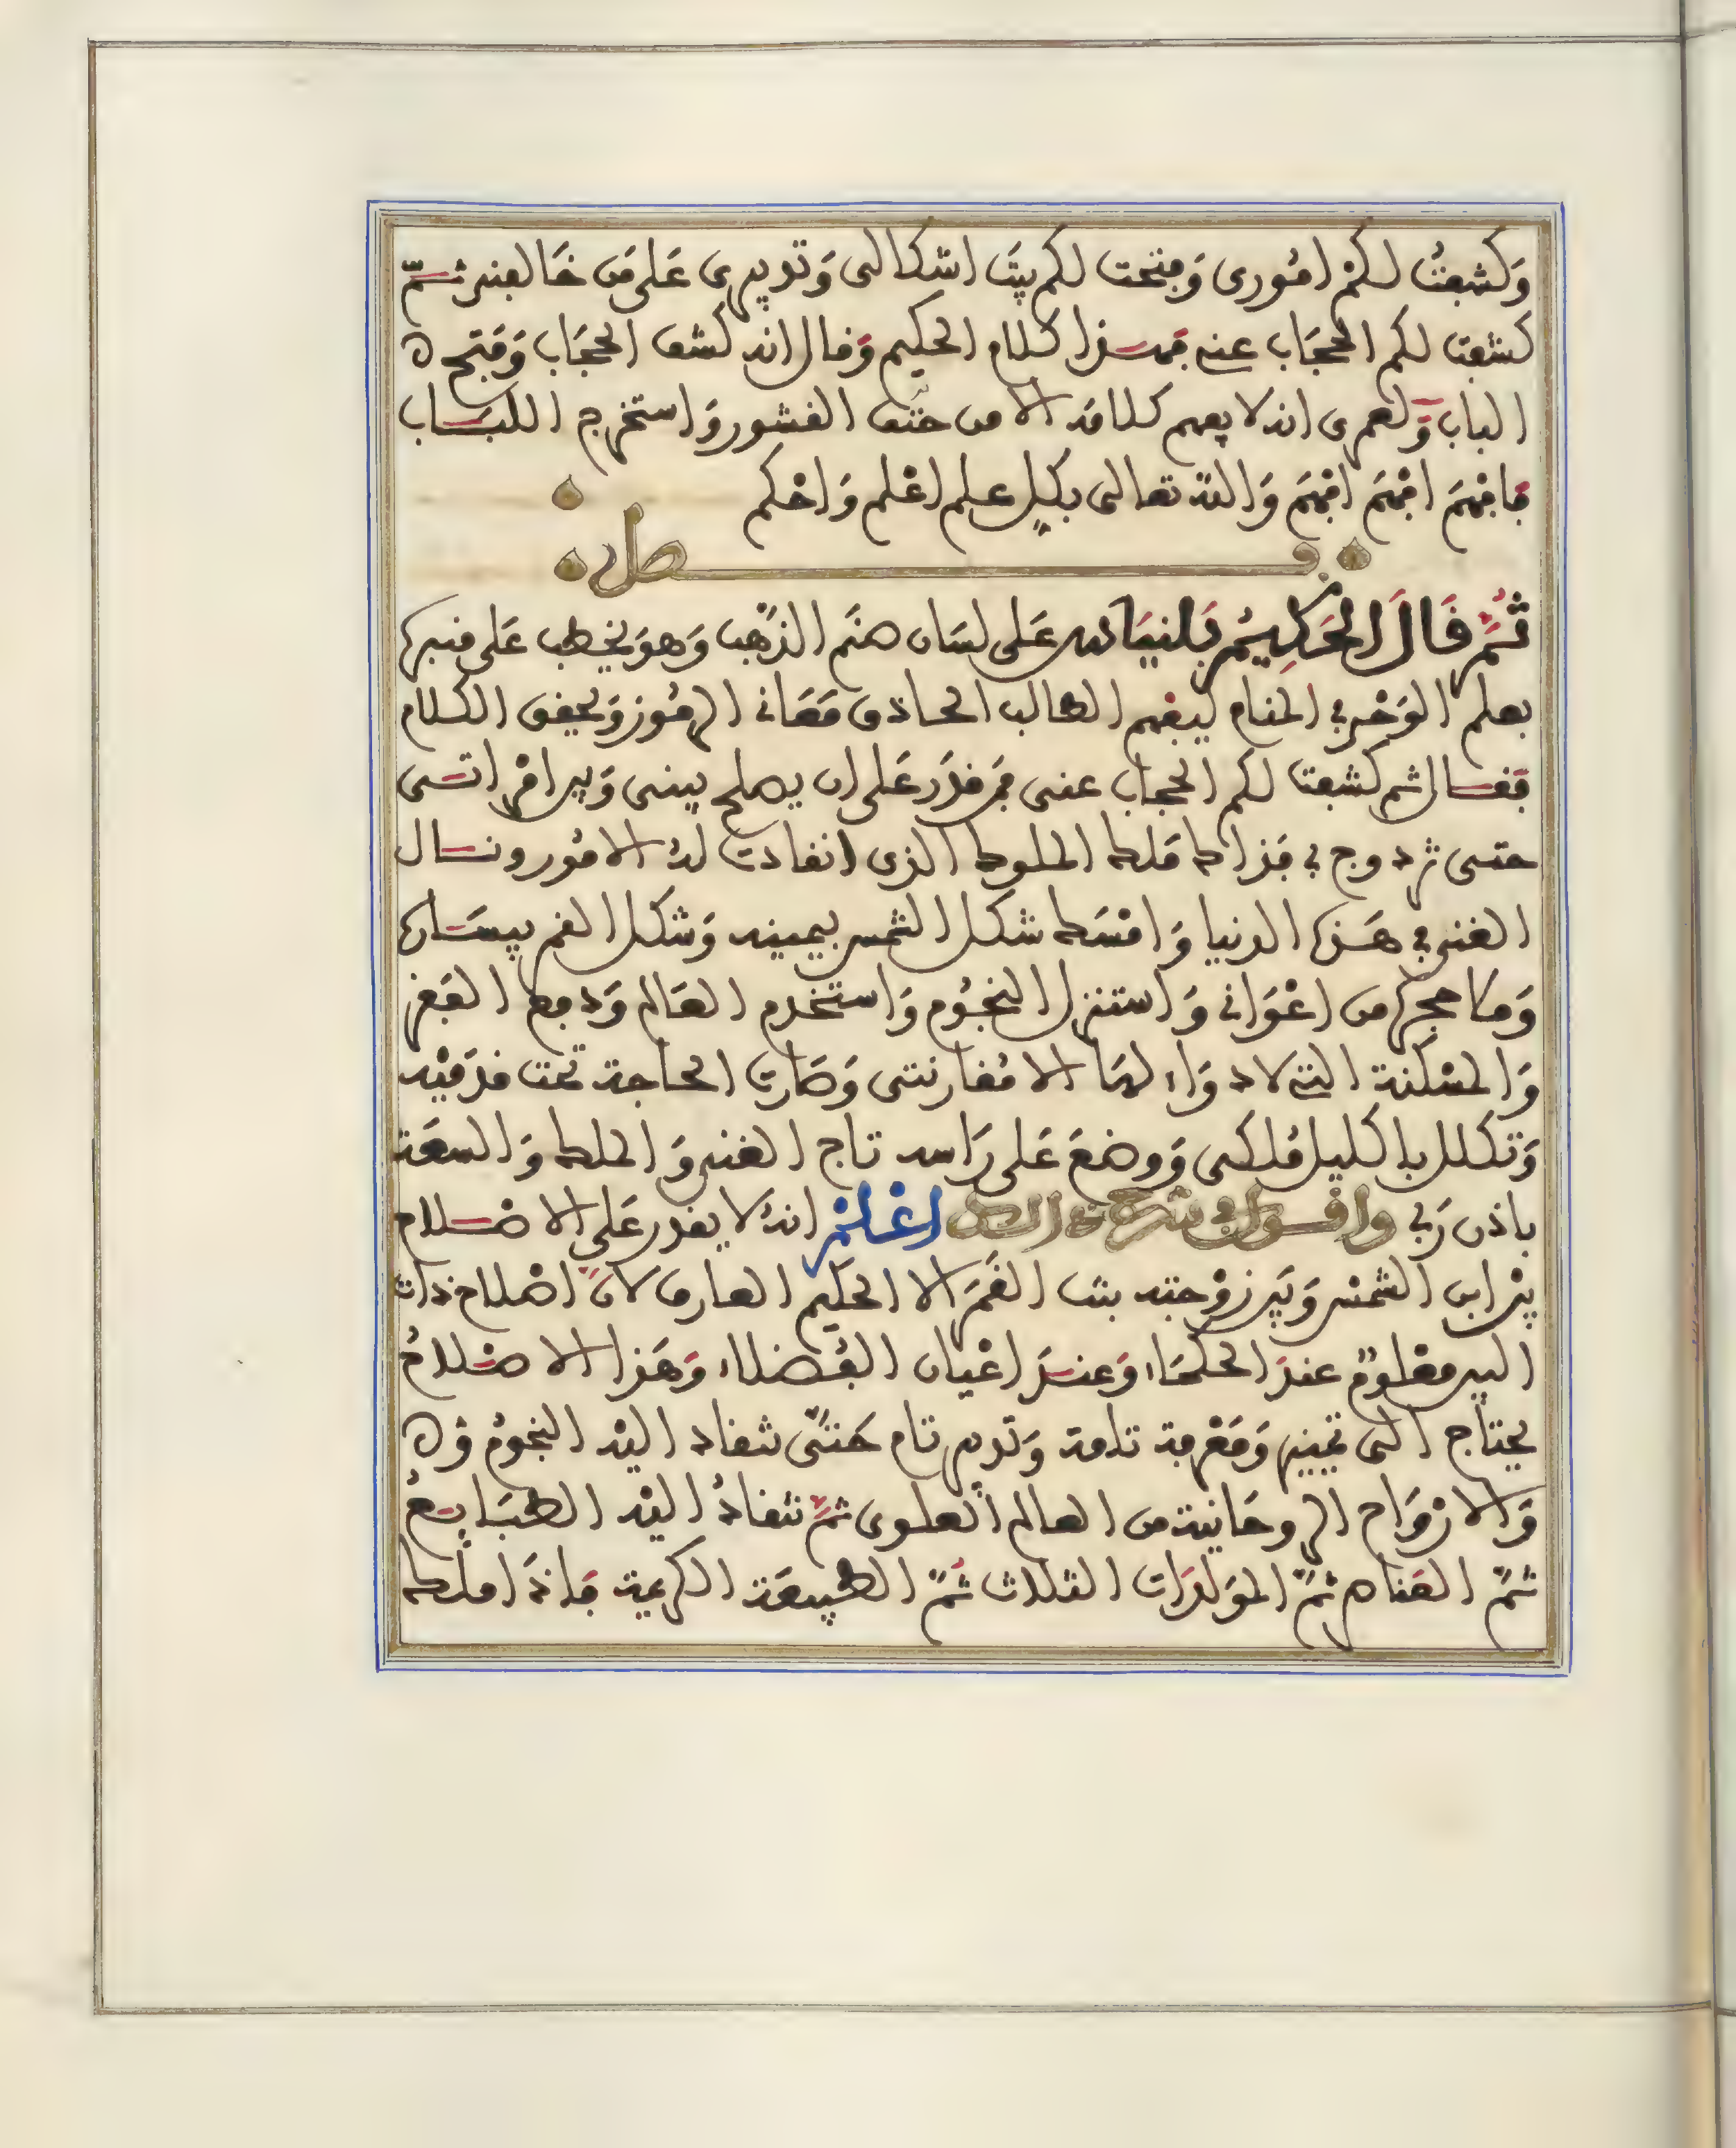 وَكشفتُ لكمْ امُورى وَفتحت لكم بيتَ اشكالى وَتدبيرى عَلى مَن خَالفنى ثمّ
كشفت لكم الحجَاب عنى فهذا كلام الحكيم وَقال انه كشف الحجَاب وَفتح
الباب وَلعمرى انه لا يفهم كلامه الا من حتف القشور وَاستخرج اللبَاب
فافهَم افهَم افهَم وَاللّه تعالى بكل علم اعْلم وَاحْكم
فصل
ثُمَّ قَالَ الحَكِيمُ بَلنيَاس عَلى لسَان صنَم الذّهَب وَهوَ يخطب عَلى منبره
بعلم الوَحْى فى المنام ليفهم الطالب الحاذق مَعَانى الرمُوز وَيحقق الكلام
فقال ثم كشفت لكم الحجاب عنى فمَن قدَر عَلى ان يصلح بينى وَبين امْراتى
حتى نزدوج فى فذاك مَلك الملوك الذى انقادت لهُ الامُور ونال
الغنى فى هَذه الدنيا وَامْسَك شكل الشمس بيمينه وَشكل القمر بيسَاره
وَصَا حجره من اعْوَانى وَاستنزل النجُوم وَاستخدم العَالم وَدفع الفَقر
وَالمسْكنة التى لا دوَاء لهَا الا مُقارنتى وَصَارت الحاجة تحت قدمَيْه
وَتكلل باكليل مُلكى وَوضعَ عَلى رَاسه تاج الغنى وَالملك وَالسعَة
باذن رَبى واقول فى شرح ذالك اعْلمْ انهُ لا يقدر عَلى الاصْلاح
بيْن ابن الشمْس وَبَين زوْجته بنت القمَر الا الحكيم العارف لانّ اصْلاح ذات
البين معْلومٌ عندَ الحكمَاء وَعندَ اعْيان الفُضلاء وَهَذا الاصْلاحُ
يحتاج الى تمييز وَمَعْرفة تامة وَتدبير تام حَتّى تنقاد اليْه النجومُ
وَالارْوَاح الروحَانية من العالم العلوى ثمَّ تنقادُ اليْه الطبَايعُ
ثمّ العَناصر ثمّ المولدَات الثلاث ثمّ الطبيعَة الكريمة فاذَا ملك